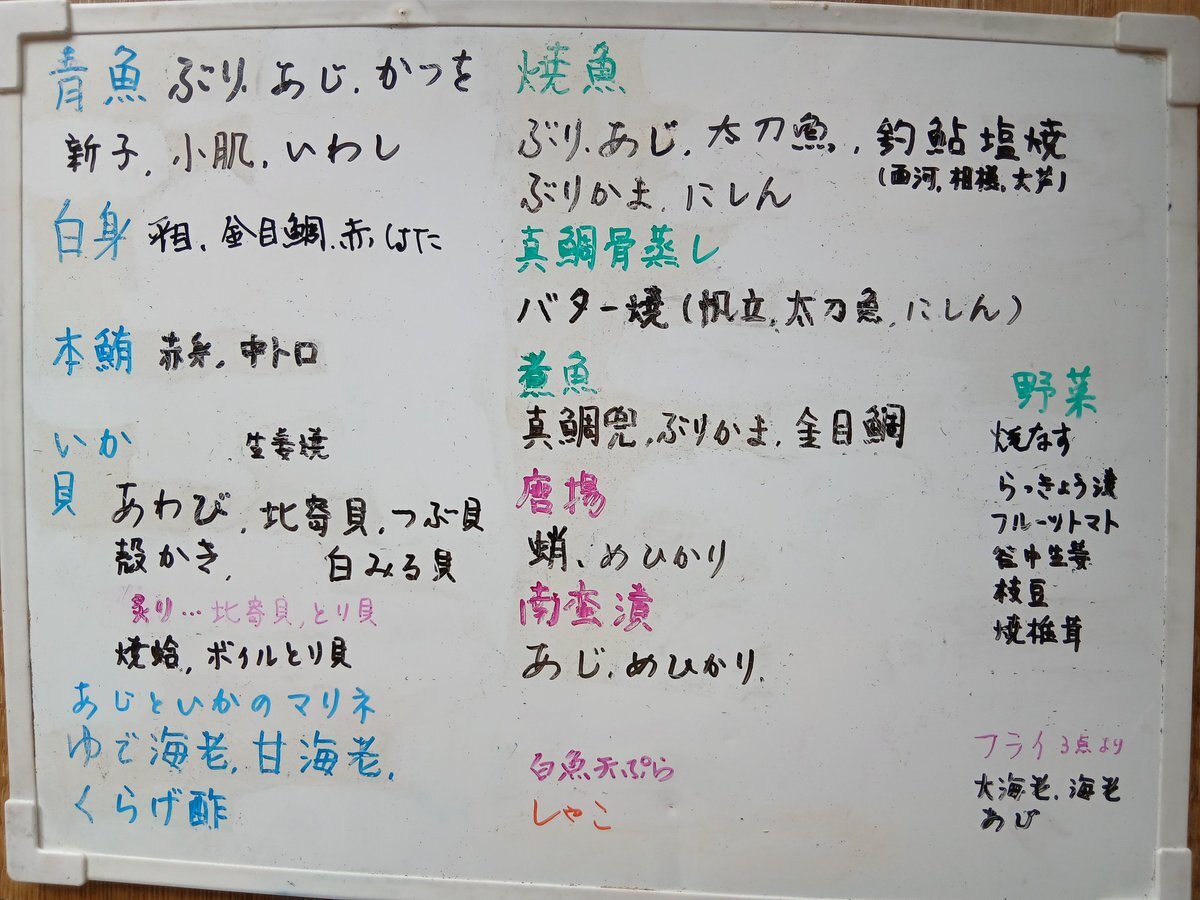 青魚 ぶり、あじ、かつを
新子、小肌、いわし
白身 平目、金目鯛、赤はた
本鮪 赤身、中トロ
いか 生姜焼
貝
あわび、北寄貝、つぶ貝
殻かき、 白みる貝
炙り…北寄貝、とり貝
焼蛤、ボイルとり貝
あじといかのマリネ
ゆで海老、甘海老、
くらげ酢
焼魚
ぶり、あじ、太刀魚、釣鮎塩焼
(西河、相模、大芦)
ぶりかま、にしん
真鯛骨蒸し
バター焼(帆立、太刀魚、にしん)
煮魚
真鯛兜、ぶりかま、金目鯛
唐揚
蛸、めひかり
南蛮漬
あじ、めひかり、
白魚天ぷら
しゃこ
野菜
焼なす
らっきょう漬
フルーツトマト
谷中生姜
枝豆
焼椎茸
フライ3点より
大海老、海老
あじ